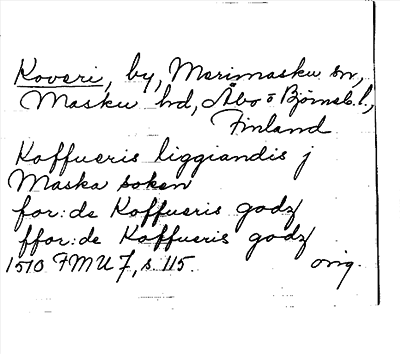 Koveri, by, Merimasku sn,
Masku hd, Åbo o Björneb. l.,
Finland
Koffueris liggiandis j
Maska soken
for:de Koffueris godz
ffor:de Koffueris godz
1510 FMU 7, s 115. orig.